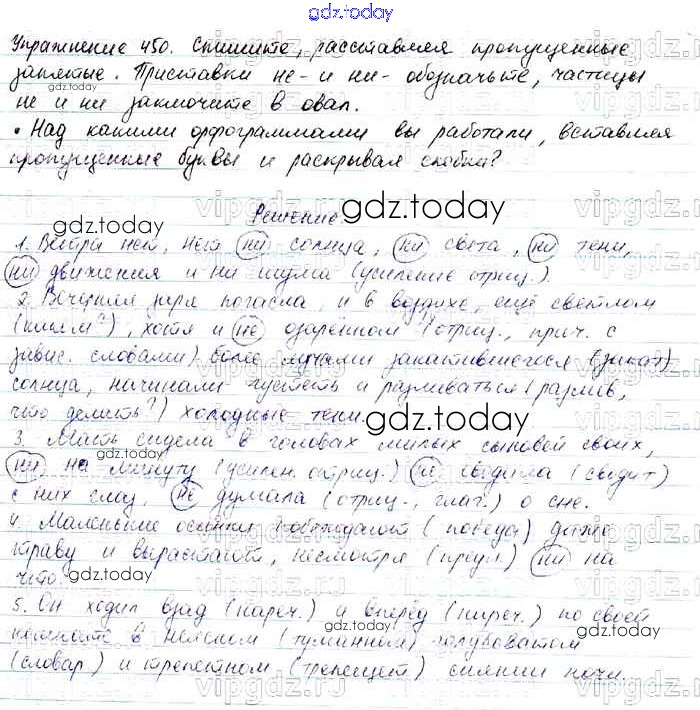 gdz.today
Упражнение 450. Спишите, расставляя пропущенные
запятые. Приставки не- и ни- обозначьте, частицы
не и ни заключите в овал.
• Над какими орфограммами вы работали, вставляя
пропущенные буквы и раскрывая скобки?
Решение.
1. Ветра нет, нет ни солнца, ни света, ни тени,
ни движения и ни шума (усиление отриц.).
2. Вечерняя заря погасла, и в воздухе, ещё светлом
(каком?), хотя и не озарённом (отриц., прич. с
завис. словами) более лучами закатившегося (закат)
солнца, начинали густеть и разливаться (разлив,
что делать?) холодные тени.
3. Мать сидела в головах милых сыновей своих,
ни на минуту (усилен. отриц.) не сводила (сводит)
с них глаз, не думала (отриц., глаг.) о сне.
4. Маленькие осинки побеждают (победа) даже
траву и вырастают, несмотря (предл.) ни на
что.
5. Он ходил взад (нареч.) и вперёд (нареч.) по своей
комнате в неясном (туманном) голубоватом
(словар) и трепетном (трепещет) сиянии ночи.